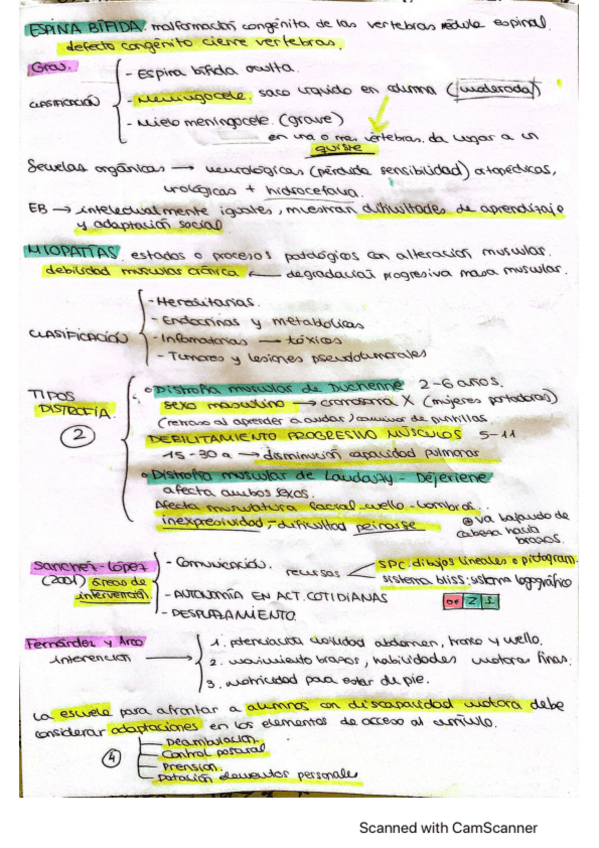 ESPINA BÍFIDA. malformación congénita de las vertebras médula espinal.
defecto congénito cierre vertebras.
Gras.
CLASIFICACIÓN
- Espina bífida oculta.
- Meningocele. saco líquido en columna (moderada)
- Mielo meningocele. (grave)
en una o mas vértebras, da lugar a un
quiste
Secuelas orgánicas → neurológicas (pérdida sensibilidad) ortopédicas,
urológicas + hidrocefalia.
EB → intelectualmente iguales, muestran dificultades de aprendizaje
y adaptación social
MIOPATÍAS. estados o procesos patológicos con alteración muscular.
debilidad muscular crónica ← degradación progresiva masa muscular.
CLASIFICACIÓN
- Hereditarias.
- Endocrinas y metabólicas
- Inflamatorias → tóxicos
- Tumores y lesiones pseudotumorales
TIPOS
DISTROFIA.
2
o Distrofia muscular de Duchenne 2-6 años.
sexo masculino → cromosoma X (mujeres portadoras)
(retraso al aprender a andar) caminar de puntillas.
DEBILITAMIENTO PROGRESIVO MÚSCULOS 5-11
15-30 a → disminución capacidad pulmonar
o Distrofia muscular de Landouzy - Dejeriene
afecta ambos sexos.
Afecta musculatura facial, cuello, hombros.
inexpresividad, - dificultad peinarse
⊕ va bajando de
cabeza hacia
brazos.
Sanchéz-López
(2001) áreas de
intervención.
- Comunicación. recursos
SPC: dibujos lineales o pictogram.
sistema bliss: sistema logográfico
- AUTONOMÍA EN ACT. COTIDIANAS
- DESPLAZAMIENTO.
Fernández y Arco
intervención →
1. potenciación movilidad abdomen, tronco y cuello.
2. movimiento brazos, habilidades motoras finas.
3. motricidad para estar de pie.
La escuela para afrontar a alumnos con discapacidad motora debe
considerar adaptaciones en los elementos de acceso al currículo.
4
Deambulación.
Control postural
Prensión.
Dotación elementos personales
Scanned with CamScanner